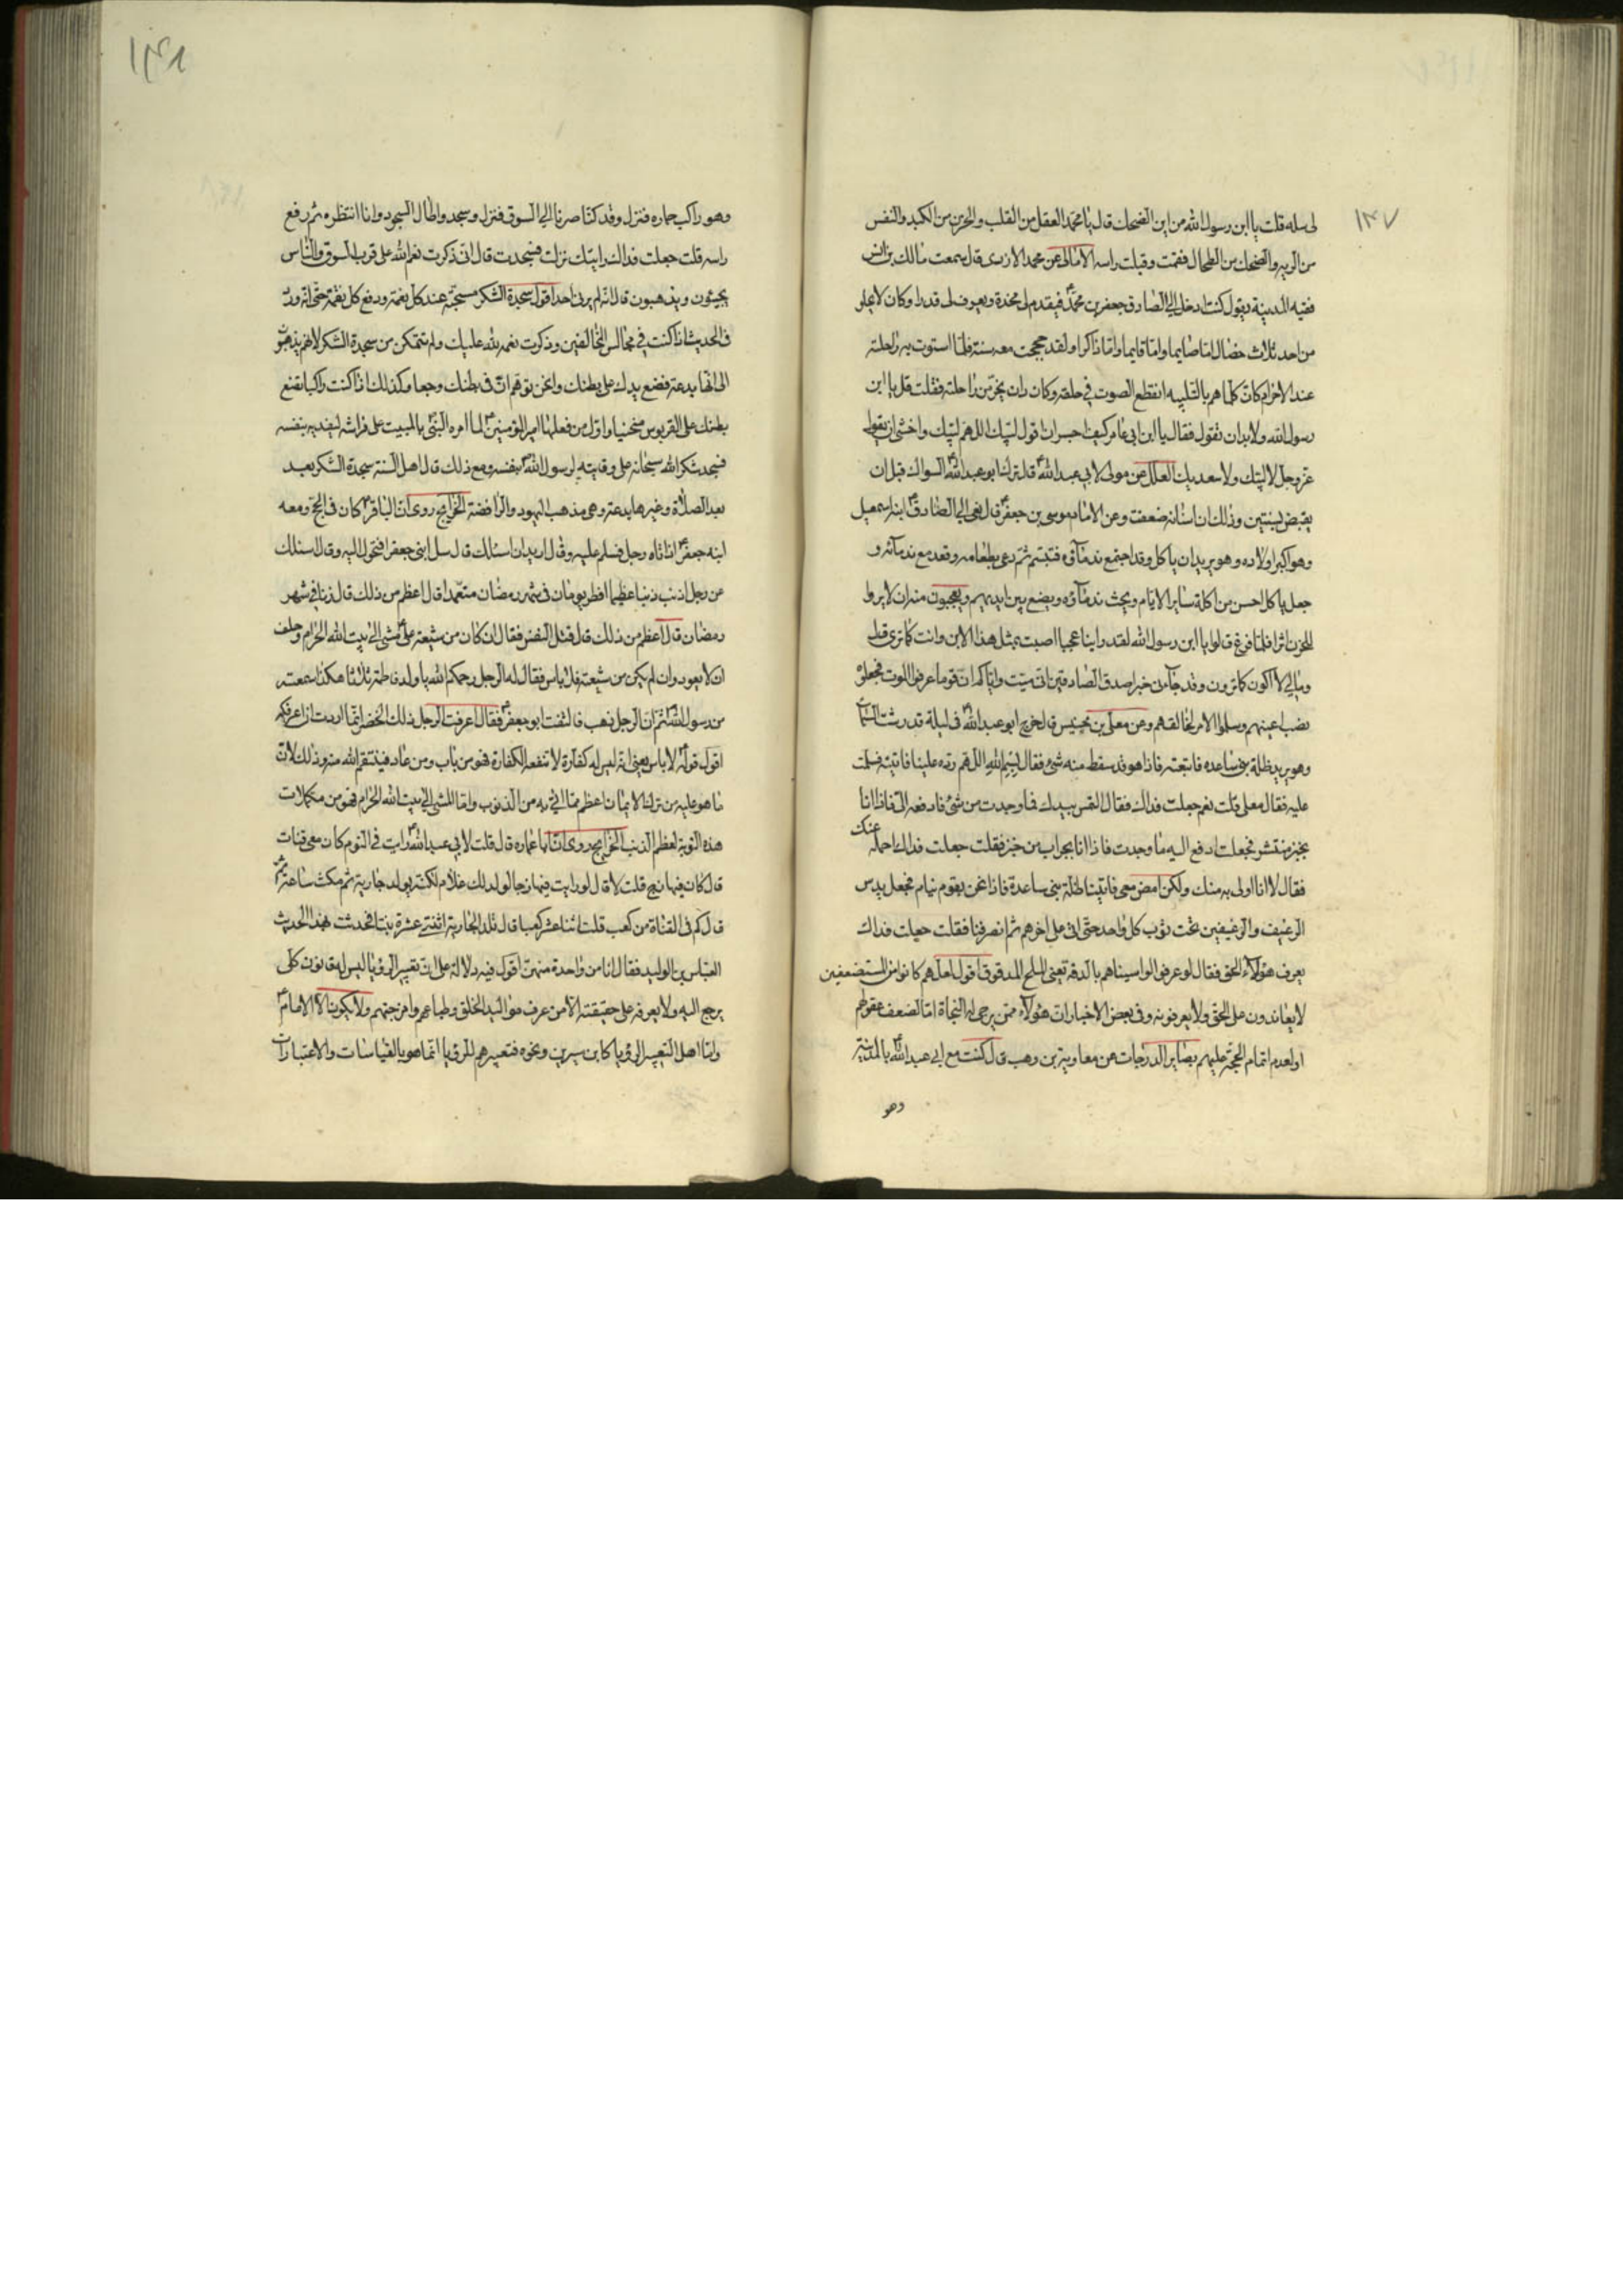 ١٣٧
لى سله قلت يا ابن رسول الله من اين الضحك قال يا محمد العقل من القلب والحزن من الكبد والنفس
من الريه والضحك من الطحال فقمت وقبلت راسه الامالى عن محمد الازدى قال سمعت مالك بن انس
فقيه المدينة يقول كنت ادخل الى الصادق جعفر بن محمد فيقدم لى مخدة ويعرف لى قدرا وكان لا يخلو
من احد ثلاث خصال اما صايما واما قايما واما ذاكرا ولقد حججت معه سنة فلما استوت به راحلته
عند الاحرام كان كلما هم بالتلبيه انقطع الصوت فى حلقه وكان ان يخر من راحلته فقلت قل يا ابن
رسول الله ولا بد ان تقول فقال يا ابن ابى عامر كيف اجسر ان اقول لبيك اللهم لبيك واخشى ان يقول
عز وجل لا لبيك ولا سعديك العلل عن مولى لابى عبد الله قال ترك ابو عبد الله السواك قبل ان
يقبض بسنتين وذلك ان اسنانه ضعفت وعن الامام موسى بن جعفر قال نعى الى الصادق ابنه اسمعيل
وهو اكبر اولاده وهو يريد ان ياكل وقد اجتمع ندماؤه فتبسم ثم دعى بطعامه وقعد مع ندمائه و
جعل ياكل احسن من اكله ساير الايام ويحث ندماؤه ويضع بين ايديهم ويعجبون منه ان لا يروا
للحزن اثرا فلما فرغ قالوا يا ابن رسول الله لقد راينا عجبا اصبت بمثل هذا الابن وانت كما ترى قال
ومالى لا اكون كما ترون وقد جاءنى خبر اصدق الصادقين انى ميت واياكم ان قوما عرفوا الموت فجعلوه
نصب اعينهم وسلموا الامر لخالقهم وعن معلى بن خنيس قال خرج ابو عبد الله فى ليلة قد رشت السماء
وهو يريد ظلة بنى ساعده فاتبعته فاذا هو قد سقط منه شئ فقال بسم الله اللهم رده علينا فاتيته فسلمت
عليه فقال معلى قلت نعم جعلت فداك فقال التمس بيدك فما وجدت من شئ فادفعه الى فاذا انا
بخبز منتشر فجعلت ادفع اليه ما وجدت فاذا انا بجراب من خبز فقلت جعلت فداك احمله عنك
فقال لا انا اولى به منك ولكن امض معى فاتينا ظلة بنى ساعدة فاذا نحن بقوم نيام فجعل يدس
الرغيف والرغيفين تحت ثوب كل واحد حتى اتى على اخرهم ثم انصرفنا فقلت جعلت فداك
يعرف هؤلاء الحق فقال لو عرفوا لواسيناهم بالدقه يعنى الملح المدقوق اقول لعلهم كانوا من المستضعفين
لا يعاندون على الحق ولا يعرفونه وفى بعض الاخبار ان هؤلاء ممن يرجى له النجاة اما لضعف عقولهم
او لعدم اتمام الحجة عليهم بصاير الدرجات عن معاوية بن وهب قال كنت مع ابى عبد الله بالمدينة
وهو
١٣٨
وهو راكب حماره فنزل وقد كنا صرنا الى السوق فنزل وسجد واطال السجود وانا انتظره ثم رفع
راسه قلت جعلت فداك رايتك نزلت فسجدت قال انى ذكرت نعم الله على قرب السوق والناس
يجيئون ويذهبون قال انه لم يرنى احد اقول سجدة الشكر مستحبة عند كل نعمة ودفع كل نقمة حتى انه ورد
فى الحديث اذا كنت فى مجالس المخالفين وذكرت نعمه لله عليك ولم تتمكن من سجدة الشكر لانهم يذهبون
الى انها بدعة فضع يدك على بطنك وانحن توهم ان فى بطنك وجعا وكذلك اذا كنت راكبا تضع
بطنك على القربوس منحنيا واول من فعلها امير المؤمنين لما امره النبى بالمبيت على فراشه ليفديه بنفسه
فسجد شكر الله سبحانه على وقايته لرسول الله بنفسه ومع ذلك قال اهل السنة سجدة الشكر بعد
بعد الصلاة وغيرها بدعة وهى مذهب اليهود والرافضة الخرايج روى ان الباقر كان فى الحج ومعه
ابنه جعفر اذ اتاه رجل فسلم عليه وقال اريد ان اسئلك قال سل ابنى جعفرا فتحول اليه وقال اسئلك
عن رجل اذنب ذنبا عظيما افطر يوما من فى شهر رمضان متعمدا قال اعظم من ذلك قال زنا فى شهر
رمضان قال اعظم من ذلك قال قتل النفس فقال ان كان من شيعة على مشى الى بيت الله الحرام وحلف
ان لا يعود وان لم يكن من شيعته فلا باس فقال له الرجل رحمكم الله يا ولد فاطمة ثلاثا هكذا سمعته
من رسول الله ثم ان الرجل ذهب فالتفت ابو جعفر فقال اعرفت الرجل ذلك الخضر انما اردت ان اعرفكم
اقول قوله لا باس يعنى انه ليس له كفارة لا تنفعه الكفارة فهو من باب ومن عاد فينتقم الله منه وذلك لان
ما هو عليه من ترك الايمان اعظم مما اتى به من الذنوب واما المشى الى بيت الله الحرام فهو من مكملات
هذه التوبة لعظم الذنب الخرايج روى ان ابا عماره قال قلت لابى عبد الله رايت فى النوم كان معى قناة
قال كان فيها زج قلت لا قال لو رايت فيها زجا لولد لك غلام لكنه يولد جارية ثم مكث ساعة ثم
قال كم فى القناة من كعب قلت اثنا عشر كعبا قال تلد الجارية اثنتى عشرة بنتا فحدثت بهذا الحديث
العباس بن الوليد فقال انا من واحدة منهن اقول فيه دلالة على ان تعبير الرؤيا ليس له قانون كلى
يرجع اليه ولا يعرفه على حقيقته الا من عرف مواليد الخلق وطباعهم وامزجتهم ولا يكون الا الامام
واما اهل التعبير للرؤيا كابن سيرين ونحوه فتعبيرهم للرؤيا انما هو بالقياسات والاعتبارات